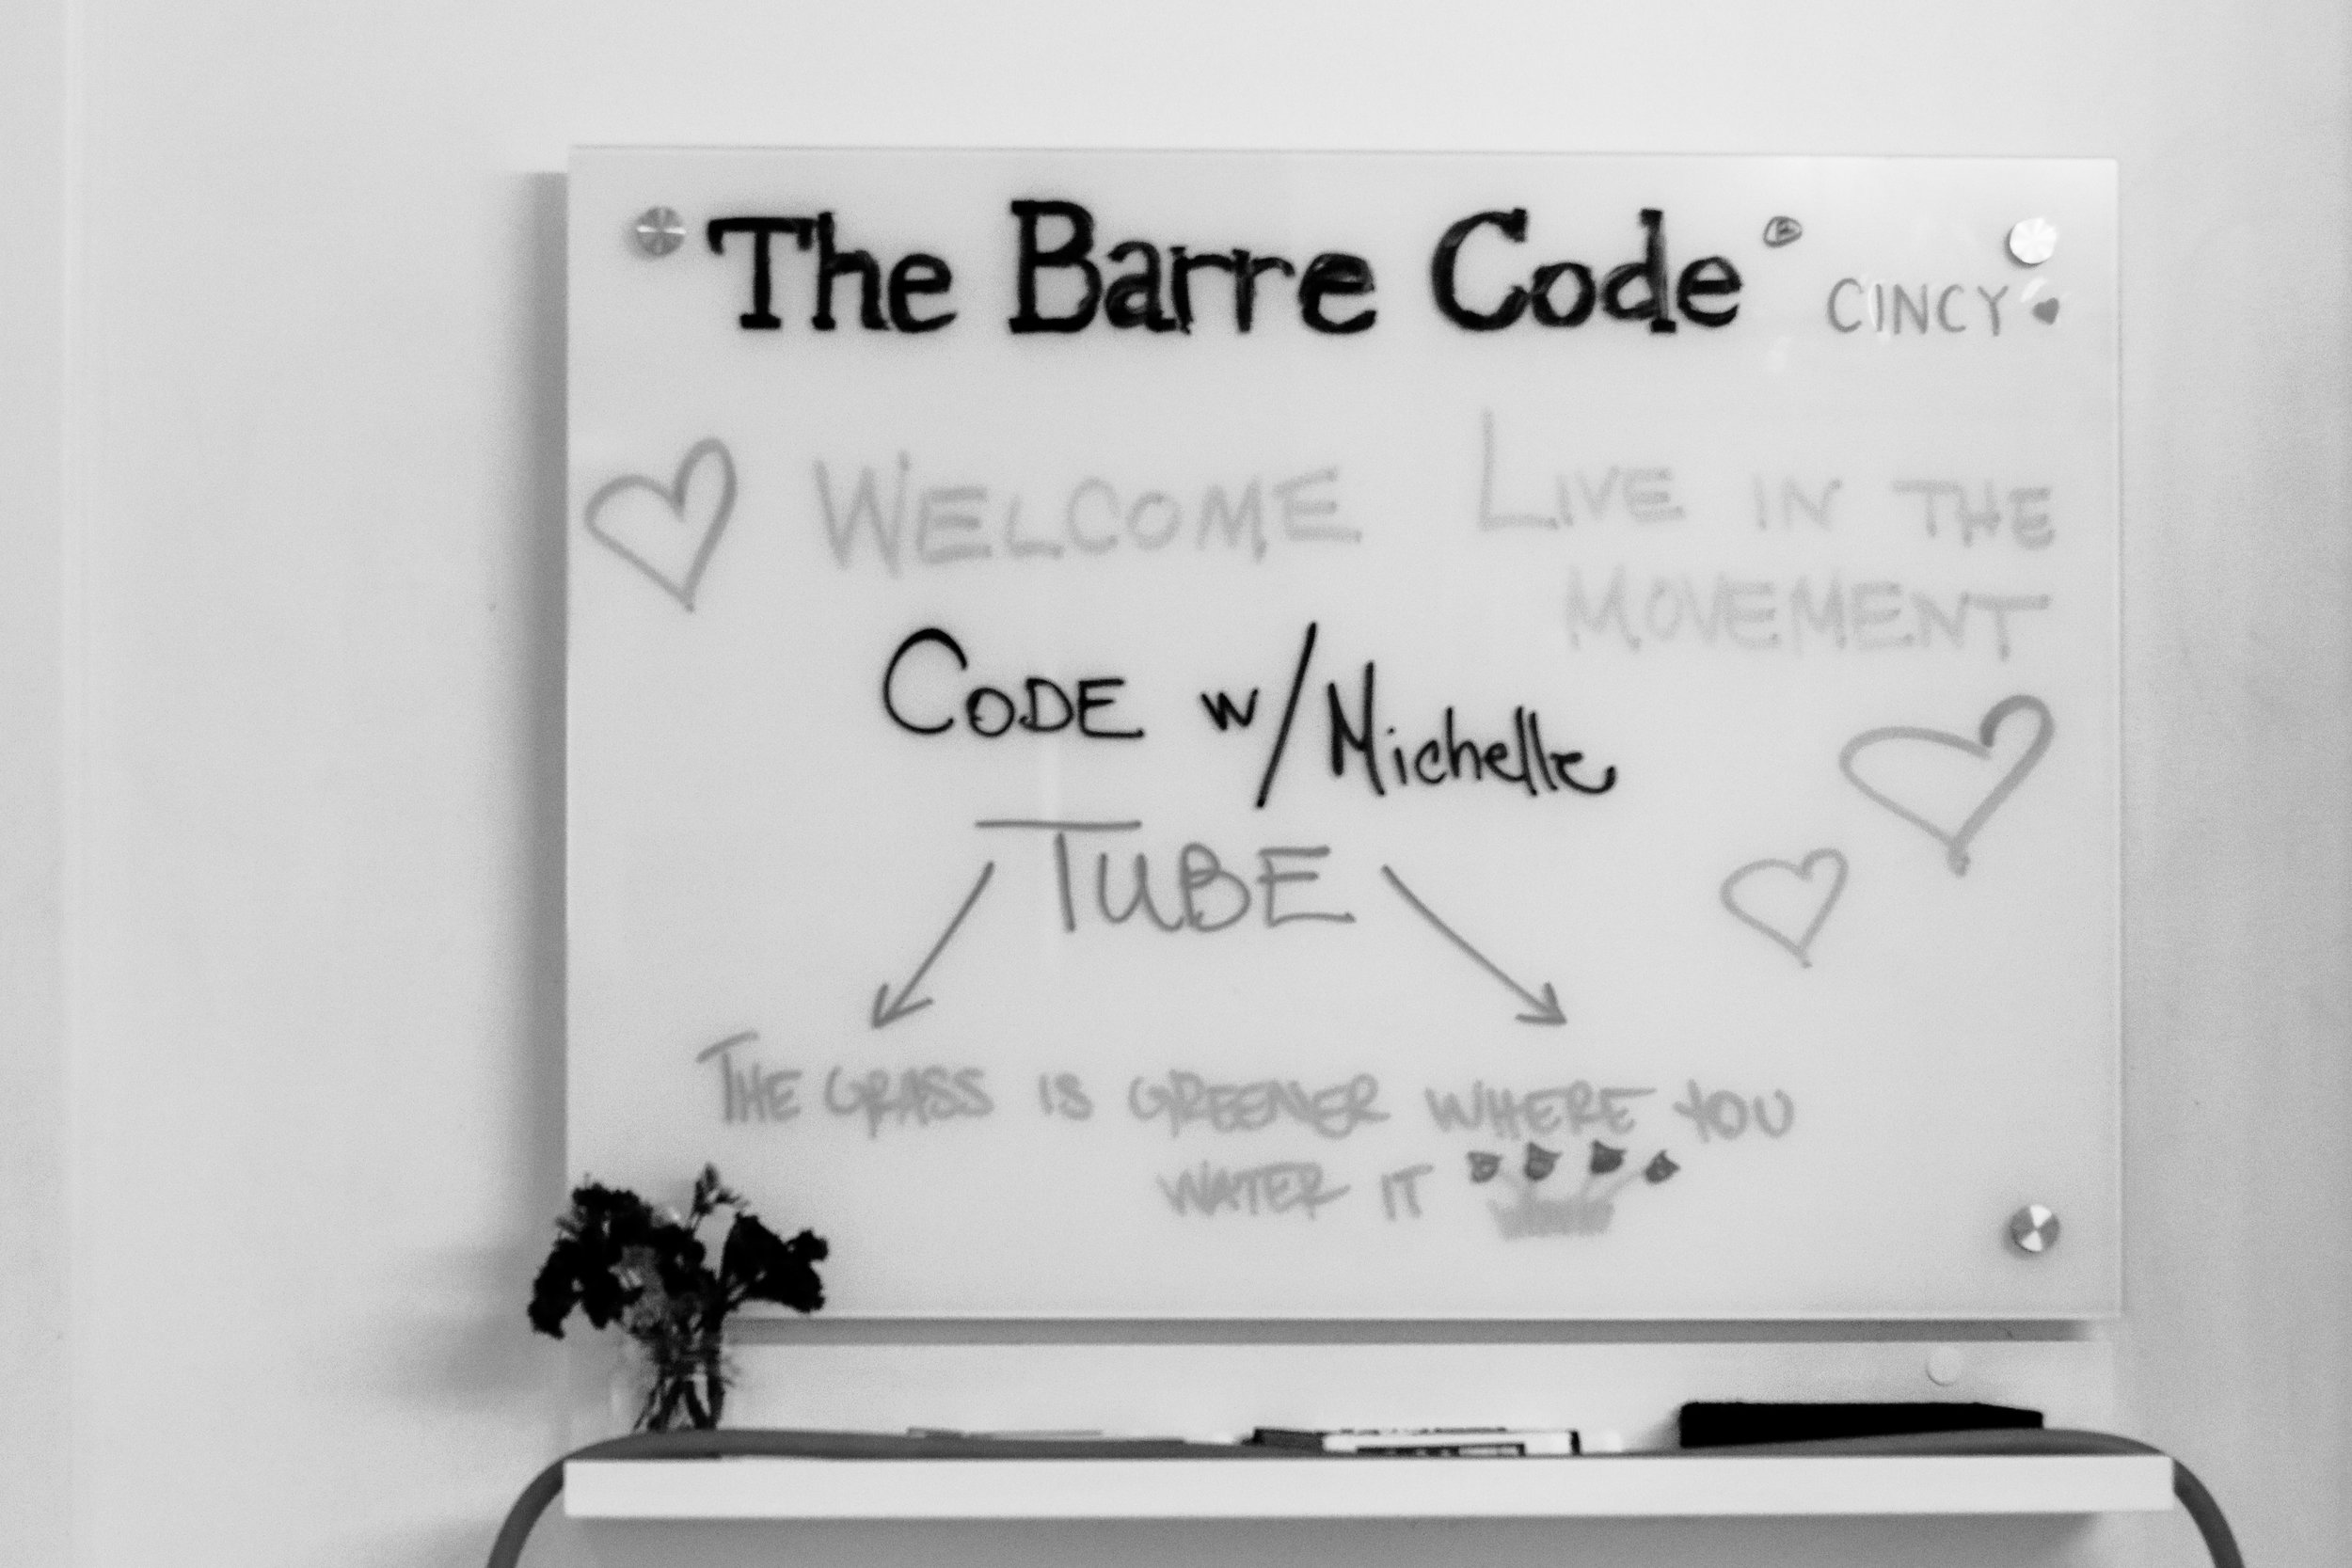 The Barre Code ® CINCY
WELCOME LIVE IN THE
MOVEMENT
CODE w/ Michelle
TUBE
THE GRASS IS GREENER WHERE YOU
WATER IT